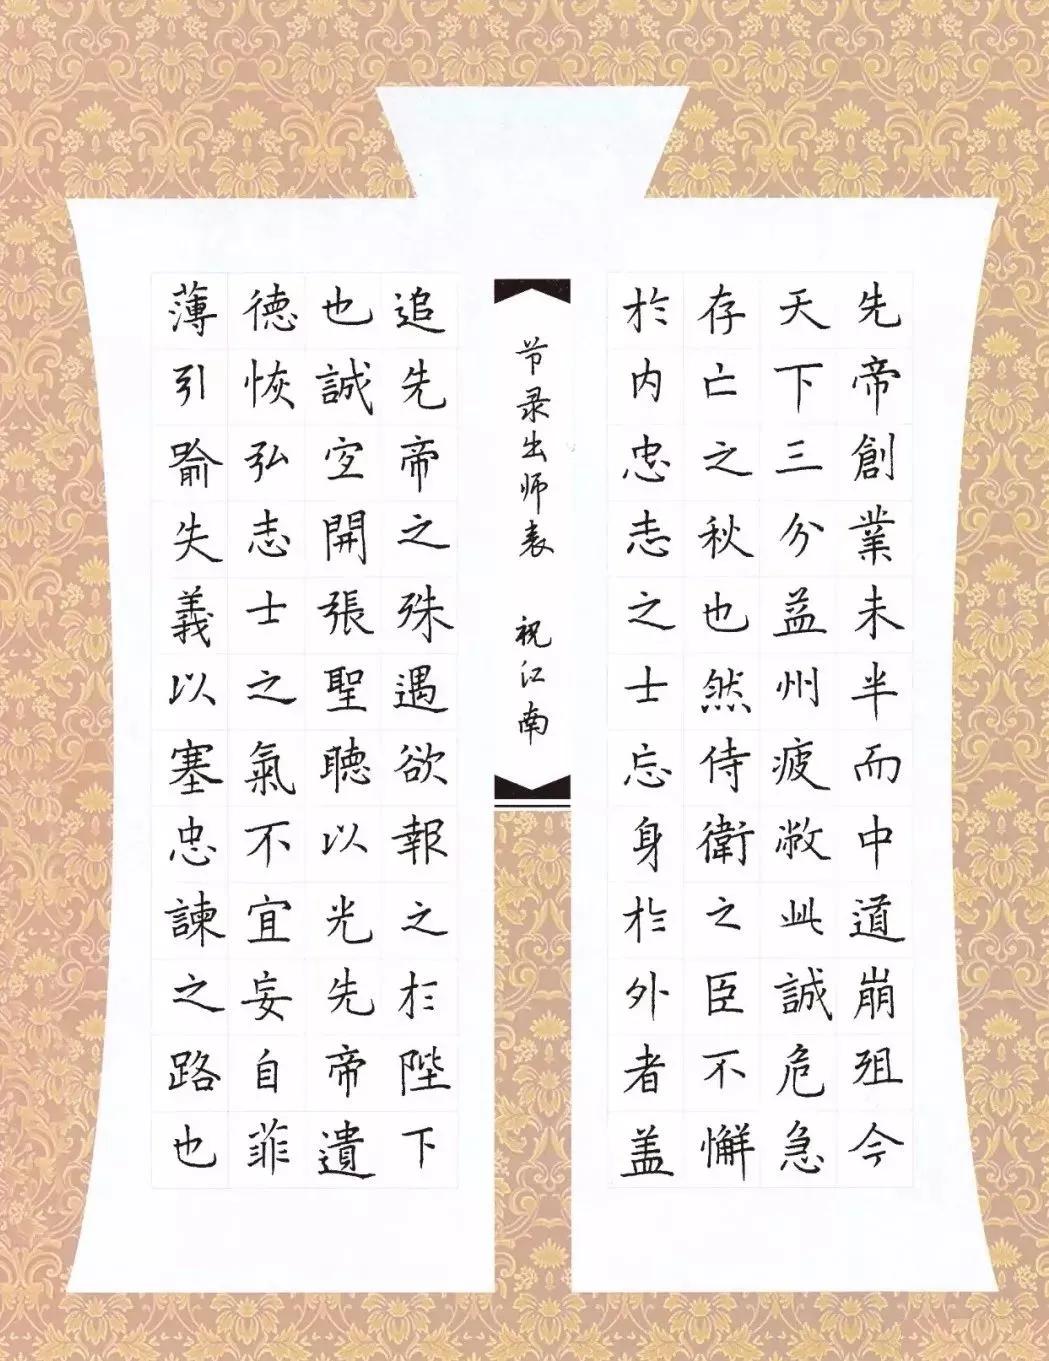 先帝創業未半而中道崩殂今
天下三分益州疲敝此誠危急
存亡之秋也然侍衛之臣不懈
於内忠志之士忘身於外者盖
追先帝之殊遇欲報之於陛下
也誠宜開張聖聴以光先帝遺
德恢弘志士之氣不宜妄自菲
薄引喻失義以塞忠諫之路也
节录出师表 祝江南